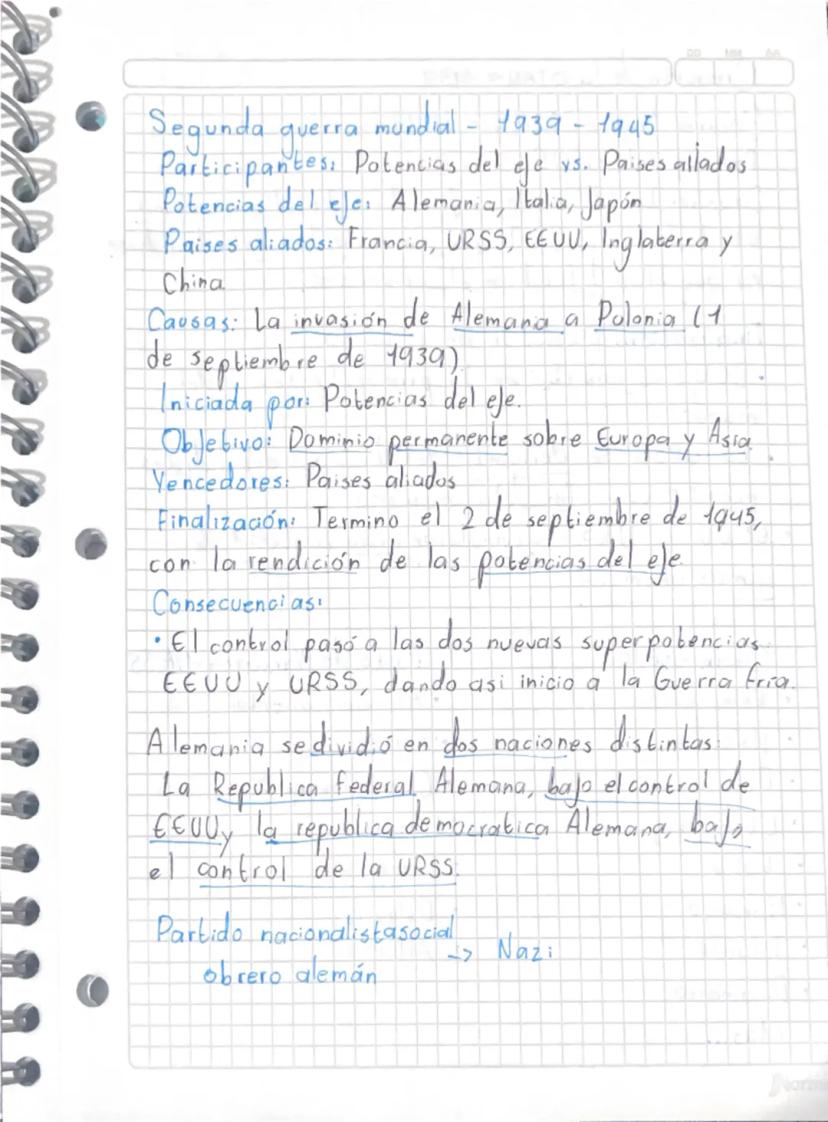 DD MM AA
Segunda guerra mundial - 1939 - 1945
Participantes: Potencias del eje vs. Paises aliados
Potencias del eje: Alemania, Italia, Japón
Paises aliados: Francia, URSS, EEUU, Inglaterra y
China
Causas: La invasión de Alemana a Polonia (1
de septiembre de 1939)
Iniciada por: Potencias del eje.
Objetivo: Dominio permanente sobre Europa y Asia.
Vencedores: Paises aliados
Finalización: Termino el 2 de septiembre de 1945,
con la rendición de las potencias del eje.
Consecuencias:
• El control pasó a las dos nuevas superpotencias
EEUU y URSS, dando asi inicio a la Guerra fria.
Alemania se dividió en dos naciones distintas:
La Republica Federal Alemana, bajo el control de
EEUU y la republica democratica Alemana, bajo
el control de la URSS.
Partido nacionalistasocial
obrero alemán -> Nazi
Norma